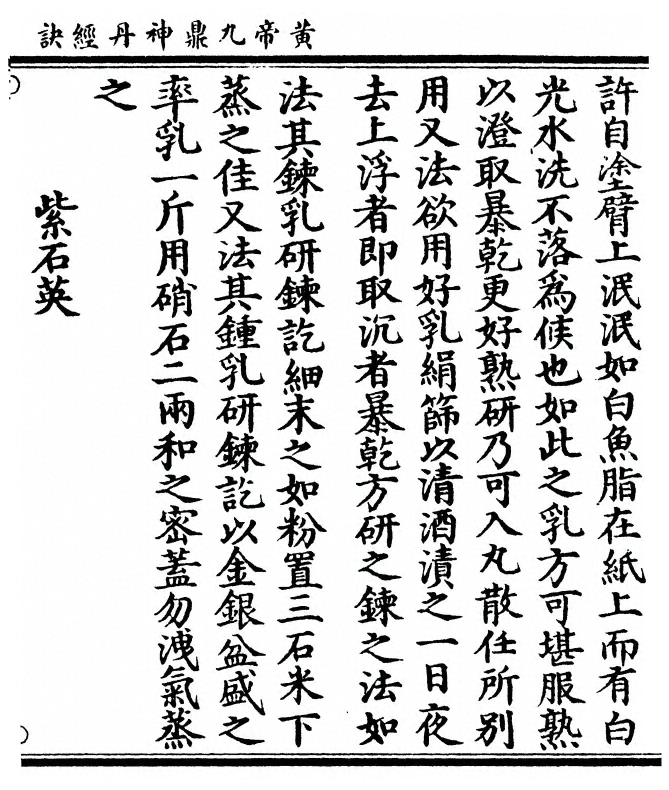 黃帝九鼎神丹經訣
許自塗臂上泯泯如白魚脂在紙上而有白
光水洗不落為候也如此之乳方可堪服熟
以澄取暴乾更好熟研乃可入丸散任所別
用又法欲用好乳絹篩以清酒漬之一日夜
去上浮者即取沉者暴乾方研之鍊之法如
法其鍊乳研鍊訖細末之如粉置三石米下
蒸之佳又法其鍾乳研鍊訖以金銀盆盛之
率乳一斤用硝石二兩和之密蓋勿洩氣蒸
之
紫石英